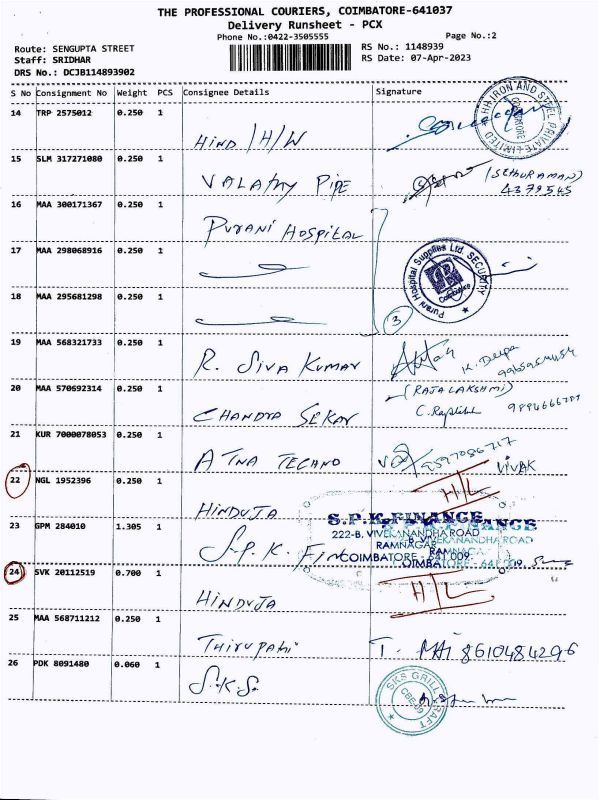 THE PROFESSIONAL COURIERS, COIMBATORE-641037
Delivery Runsheet - PCX
Phone No.:0422-3505555 Page No.:2
Route: SENGUPTA STREET RS No.: 1148939
Staff: SRIDHAR RS Date: 07-Apr-2023
DRS No.: DCJB114893902
S No Consignment No Weight PCS Consignee Details Signature
14 TRP 2575012 0.250 1 HIND /H/W
IRON AND STEEL PRIVATE LIMITED COIMBATORE
15 SLM 317271080 0.250 1 VALATHY PIPE (SETHURAMAN)
4379545
16 MAA 300171367 0.250 1 PURANI HOSPITAL
17 MAA 298068916 0.250 1
Purani Hospital Supplies Ltd. SECURITY Coimbatore
18 MAA 295681298 0.250 1
3
19 MAA 568321733 0.250 1 R. SIVA KUMAR K. Deepa
20 MAA 570692314 0.250 1 CHANDRA SEKAR (RAJALAKSHMI)
21 KUR 7000078053 0.250 1 ATNA TECHNO VIVAK
22 NGL 1952396 0.250 1 HINDUJA H/L
23 GPM 284010 1.305 1 S.P.K. FIN
S.P.K.FINANCE
222-B, VIVEKANANDHA ROAD
RAMNAGAR
COIMBATORE - 641 009
24 SVK 20112519 0.700 1 HINDUJA H/L
25 MAA 568711212 0.250 1 THIRUPATHI T. MAI 8610484296
26 PDK 8091480 0.060 1 S.K.S.
SKS GRILL CRAFT CBE-09